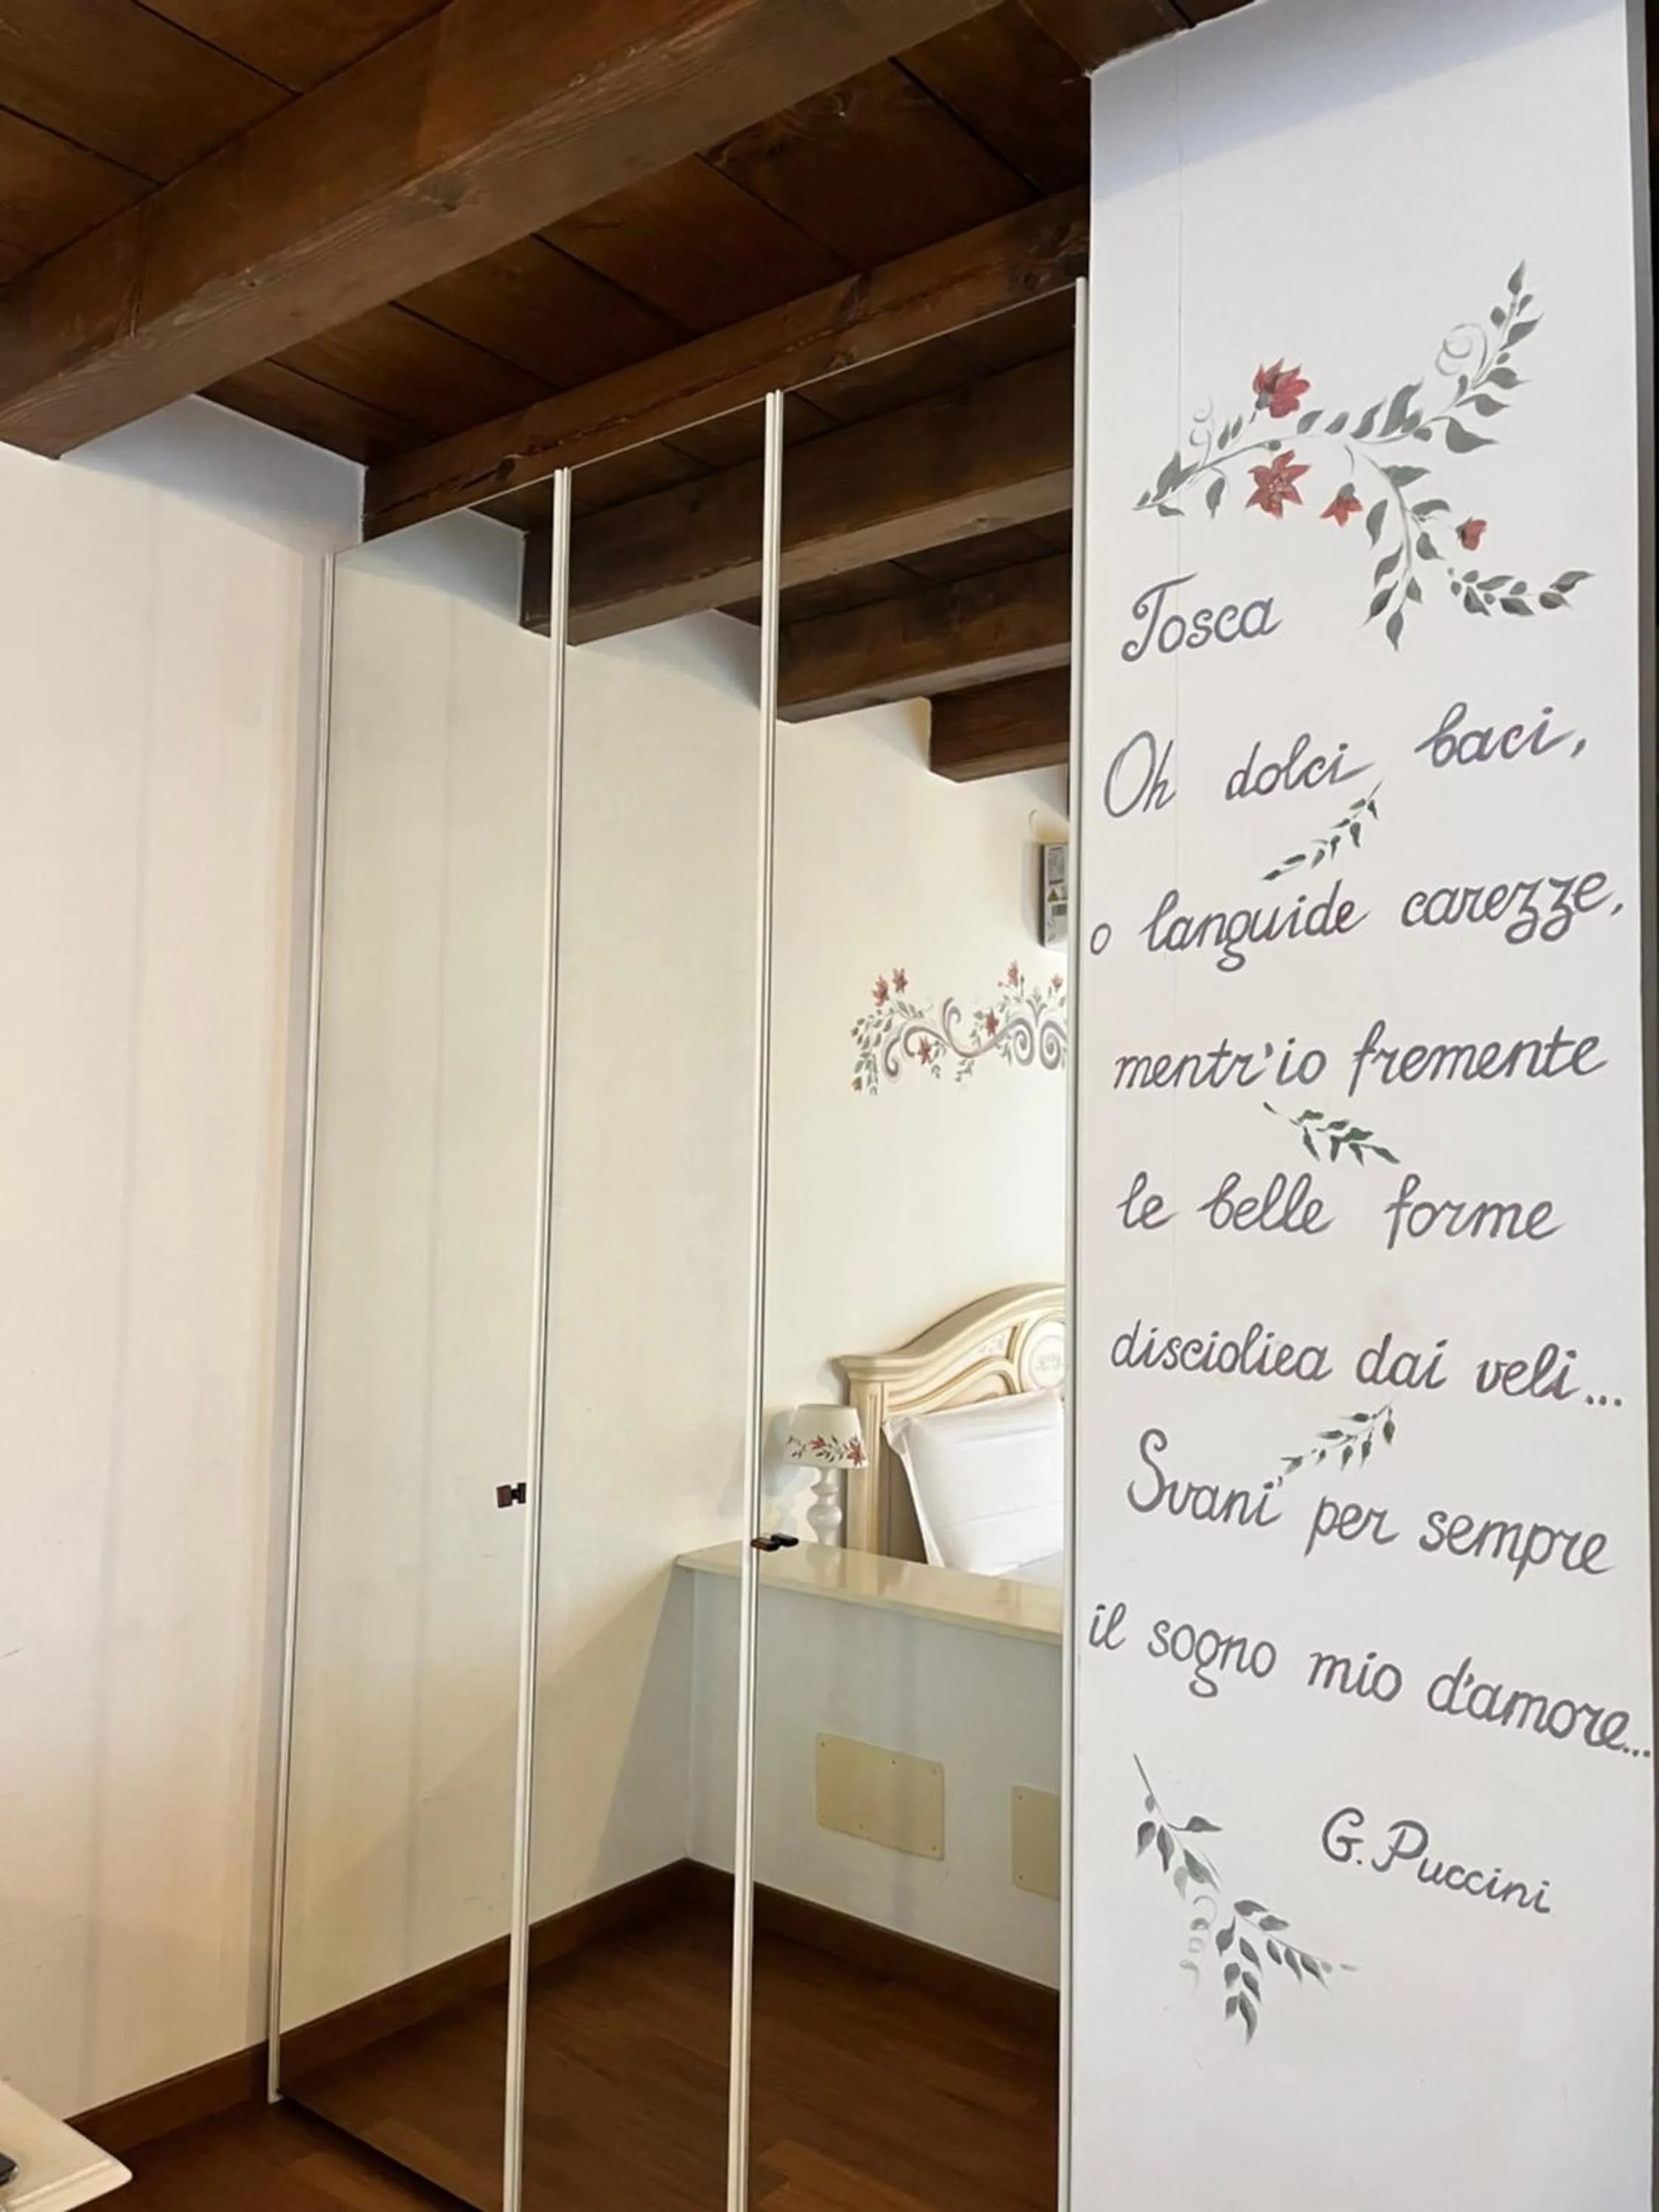 Tosca
Oh dolci baci,
o languide carezze,
mentr'io fremente
le belle forme
discioliea dai veli...
Svani' per sempre
il sogno mio d'amore...
G. Puccini